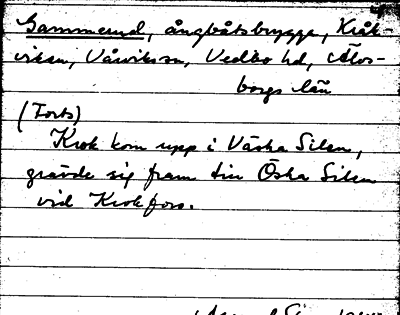 Gammelsund, ångbåtsbrygga, Kråk-
viken, Vårviks sn, Vedbo hd, Älvs-
borgs län
(Forts)
Krok kom upp i Västra Silen,
grävde sig fram till Östra Silen
vid Krokfors.